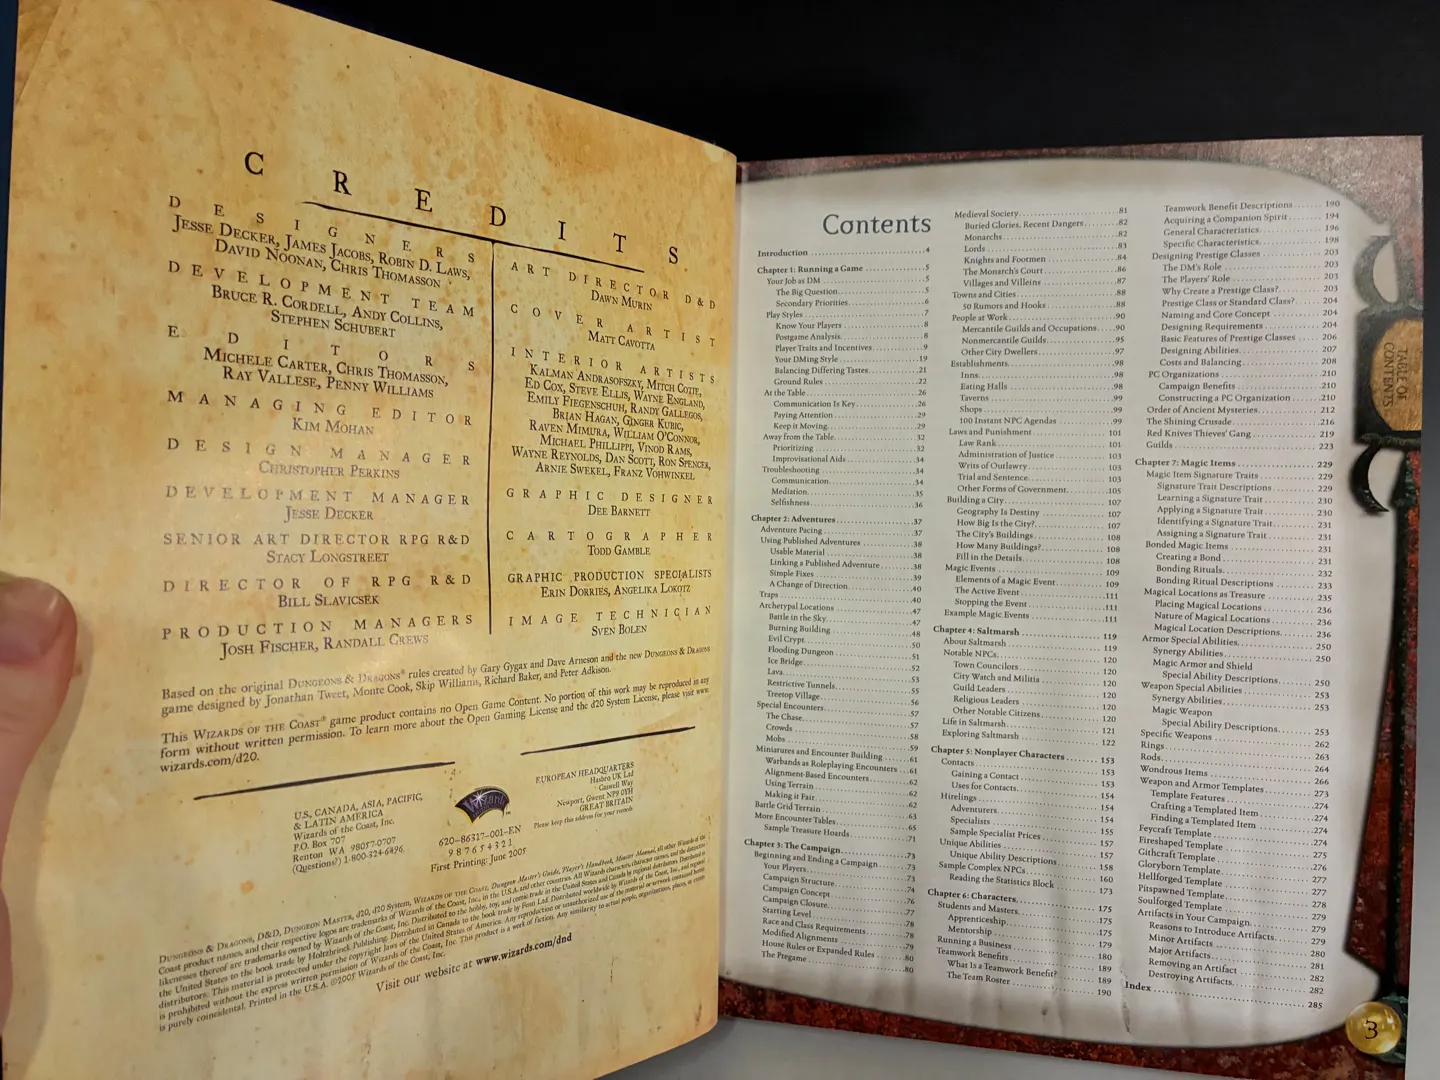 CREDITS
DESIGNERS
JESSE DECKER, JAMES JACOBS, ROBIN D. LAWS,
DAVID NOONAN, CHRIS THOMASSON
DEVELOPMENT TEAM
BRUCE R. CORDELL, ANDY COLLINS,
STEPHEN SCHUBERT
EDITORS
MICHELE CARTER, CHRIS THOMASSON,
RAY VALLESE, PENNY WILLIAMS
MANAGING EDITOR
KIM MOHAN
DESIGN MANAGER
CHRISTOPHER PERKINS
DEVELOPMENT MANAGER
JESSE DECKER
SENIOR ART DIRECTOR RPG R&D
STACY LONGSTREET
DIRECTOR OF RPG R&D
BILL SLAVICSEK
PRODUCTION MANAGERS
JOSH FISCHER, RANDALL CREWS
ART DIRECTOR D&D
DAWN MURIN
COVER ARTIST
MATT CAVOTTA
INTERIOR ARTISTS
KALMAN ANDRASOFSZKY, MITCH COTIE,
ED COX, STEVE ELLIS, WAYNE ENGLAND,
EMILY FIEGENSCHUH, RANDY GALLEGOS,
BRIAN HAGAN, GINGER KUBIC,
RAVEN MIMURA, WILLIAM O'CONNOR,
MICHAEL PHILLIPPI, VINOD RAMS,
WAYNE REYNOLDS, DAN SCOTT, RON SPENCER,
ARNIE SWEKEL, FRANZ VOHWINKEL
GRAPHIC DESIGNER
DEE BARNETT
CARTOGRAPHER
TODD GAMBLE
GRAPHIC PRODUCTION SPECIALISTS
ERIN DORRIES, ANGELIKA LOKOTZ
IMAGE TECHNICIAN
SVEN BOLEN
Based on the original DUNGEONS & DRAGONS® rules created by Gary Gygax and Dave Arneson and the new DUNGEONS & DRAGONS
game designed by Jonathan Tweet, Monte Cook, Skip Williams, Richard Baker, and Peter Adkison.
This WIZARDS OF THE COAST® game product contains no Open Game Content. No portion of this work may be reproduced in any
form without written permission. To learn more about the Open Gaming License and the d20 System License, please visit www.
wizards.com/d20.
U.S., CANADA, ASIA, PACIFIC,
& LATIN AMERICA
Wizards of the Coast, Inc.
P.O. Box 707
Renton WA 98057-0707
(Questions?) 1-800-324-6496
Wizards
620-86317-001-EN
9 8 7 6 5 4 3 2 1
First Printing: June 2005
EUROPEAN HEADQUARTERS
Hasbro UK Ltd
Caswell Way
Newport, Gwent NP9 0YH
GREAT BRITAIN
Please keep this address for your records
DUNGEONS & DRAGONS, D&D, DUNGEON MASTER, d20, d20 System, WIZARDS OF THE COAST, Dungeon Master's Guide, Player's Handbook, Monster Manual, all other Wizards of the
Coast product names, and their respective logos are trademarks of Wizards of the Coast, Inc., in the U.S.A. and other countries. All Wizards characters, character names, and the distinctive
likenesses thereof are trademarks owned by Wizards of the Coast, Inc. Distributed to the hobby, toy, and comic trade in the United States and Canada by regional distributors. Distributed in
the United States to the book trade by Holtzbrinck Publishing. Distributed in Canada to the book trade by Fenn Ltd. Distributed worldwide by Wizards of the Coast, Inc. and regional
distributors. This material is protected under the copyright laws of the United States of America. Any reproduction or unauthorized use of the material or artwork contained herein
is prohibited without the express written permission of Wizards of the Coast, Inc. This product is a work of fiction. Any similarity to actual people, organizations, places, or events
is purely coincidental. Printed in the U.S.A. ©2005 Wizards of the Coast, Inc.
Visit our website at www.wizards.com/dnd
Contents
Introduction 4
Chapter 1: Running a Game 5
Your Job as DM 5
The Big Question 5
Secondary Priorities 6
Play Styles 7
Know Your Players 8
Postgame Analysis 8
Player Traits and Incentives 9
Your DMing Style 19
Balancing Differing Tastes 21
Ground Rules 22
At the Table 26
Communication Is Key 26
Paying Attention 29
Keep it Moving 29
Away from the Table 32
Prioritizing 32
Improvisational Aids 34
Troubleshooting 34
Communication 34
Mediation 35
Selfishness 36
Chapter 2: Adventures 37
Adventure Pacing 37
Using Published Adventures 38
Usable Material 38
Linking a Published Adventure 38
Simple Fixes 39
A Change of Direction 40
Traps 40
Archetypal Locations 47
Battle in the Sky 47
Burning Building 48
Evil Crypt 50
Flooding Dungeon 51
Ice Bridge 52
Lava 53
Restrictive Tunnels 55
Treetop Village 56
Special Encounters 57
The Chase 57
Crowds 58
Mobs 59
Miniatures and Encounter Building 61
Warbands as Roleplaying Encounters 61
Alignment-Based Encounters 62
Using Terrain 62
Making it Fair 62
Battle Grid Terrain 63
More Encounter Tables 65
Sample Treasure Hoards 71
Chapter 3: The Campaign 73
Beginning and Ending a Campaign 73
Your Players 73
Campaign Structure 74
Campaign Concept 76
Campaign Closure 77
Starting Level 78
Race and Class Requirements 78
Modified Alignments 79
House Rules or Expanded Rules 80
The Pregame 80
Medieval Society 81
Buried Glories, Recent Dangers 82
Monarchs 82
Lords 83
Knights and Footmen 84
The Monarch's Court 86
Villages and Villeins 87
Towns and Cities 88
50 Rumors and Hooks 88
People at Work 90
Mercantile Guilds and Occupations 90
Nonmercantile Guilds 95
Other City Dwellers 97
Establishments 98
Inns 98
Eating Halls 98
Taverns 99
Shops 99
100 Instant NPC Agendas 99
Laws and Punishment 101
Law Rank 101
Administration of Justice 103
Writs of Outlawry 103
Trial and Sentence 103
Other Forms of Government 105
Building a City 107
Geography Is Destiny 107
How Big Is the City? 107
The City's Buildings 108
How Many Buildings? 108
Fill in the Details 108
Magic Events 109
Elements of a Magic Event 109
The Active Event 111
Stopping the Event 111
Example Magic Events 111
Chapter 4: Saltmarsh 119
About Saltmarsh 119
Notable NPCs 120
Town Councilors 120
City Watch and Militia 120
Guild Leaders 120
Religious Leaders 120
Other Notable Citizens 120
Life in Saltmarsh 121
Exploring Saltmarsh 122
Chapter 5: Nonplayer Characters 153
Contacts 153
Gaining a Contact 153
Uses for Contacts 154
Hirelings 154
Adventurers 154
Specialists 154
Sample Specialist Prices 155
Unique Abilities 157
Unique Ability Descriptions 158
Sample Complex NPCs 160
Reading the Statistics Block 173
Chapter 6: Characters 175
Students and Masters 175
Apprenticeship 175
Mentorship 175
Running a Business 179
Teamwork Benefits 180
What Is a Teamwork Benefit? 189
The Team Roster 189
190
Teamwork Benefit Descriptions 190
Acquiring a Companion Spirit 194
General Characteristics 196
Specific Characteristics 198
Designing Prestige Classes 203
The DM's Role 203
The Players' Role 203
Why Create a Prestige Class? 203
Prestige Class or Standard Class? 204
Naming and Core Concept 204
Designing Requirements 204
Basic Features of Prestige Classes 206
Designing Abilities 207
Costs and Balancing 208
PC Organizations 210
Campaign Benefits 210
Constructing a PC Organization 210
Order of Ancient Mysteries 212
The Shining Crusade 216
Red Knives Thieves' Gang 219
Guilds 223
Chapter 7: Magic Items 229
Magic Item Signature Traits 229
Signature Trait Descriptions 229
Learning a Signature Trait 230
Applying a Signature Trait 230
Identifying a Signature Trait 231
Assigning a Signature Trait 231
Bonded Magic Items 231
Creating a Bond 231
Bonding Rituals 232
Bonding Ritual Descriptions 233
Magical Locations as Treasure 235
Placing Magical Locations 236
Nature of Magical Locations 236
Magical Location Descriptions 236
Armor Special Abilities 250
Synergy Abilities 250
Magic Armor and Shield
Special Ability Descriptions 250
Weapon Special Abilities 253
Synergy Abilities 253
Magic Weapon
Special Ability Descriptions 253
Specific Weapons 262
Rings 263
Rods 264
Wondrous Items 266
Weapon and Armor Templates 273
Template Features 274
Crafting a Templated Item 274
Finding a Templated Item 274
Feycraft Template 274
Fireshaped Template 275
Githcraft Template 276
Gloryborn Template 277
Hellforged Template 277
Pitspawned Template 278
Soulforged Template 279
Artifacts in Your Campaign 279
Reasons to Introduce Artifacts 279
Minor Artifacts 280
Major Artifacts 281
Removing an Artifact 282
Destroying Artifacts 282
Index 285
TABLE OF
CONTENTS
3